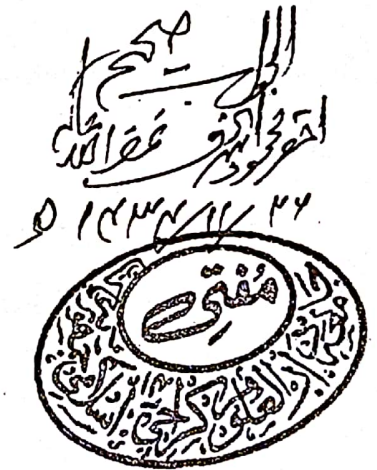 الجواب صحیح
احقر محمود اشرف غفر اللہ لہ
۲۶/۱۱/۱۴۳۴ ھ
مُفتی
دارالعلوم کراچی